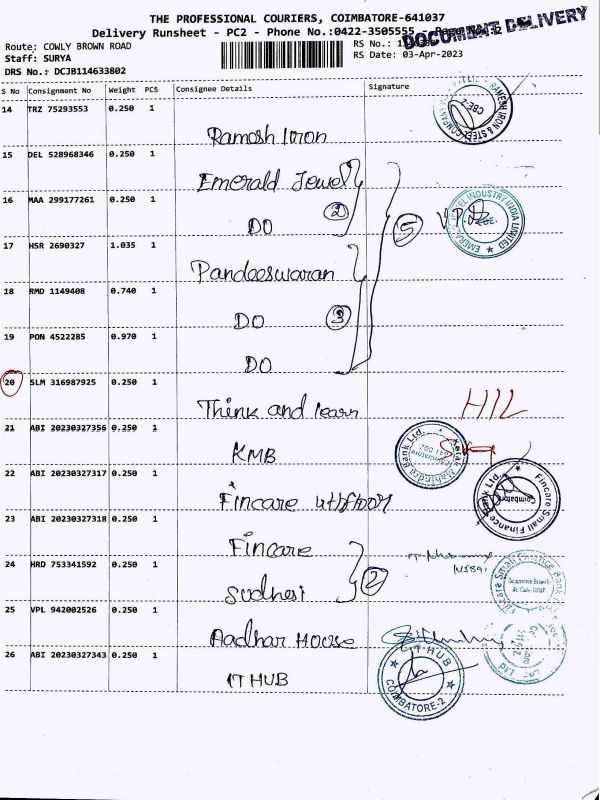 THE PROFESSIONAL COURIERS, COIMBATORE-641037
Delivery Runsheet - PC2 - Phone No.:0422-3505555
DOCUMENT DELIVERY
Route: COWLY BROWN ROAD
RS No.:
Staff: SURYA
RS Date: 03-Apr-2023
DRS No.: DCJB114633802
S No Consignment No Weight PCS Consignee Details Signature
14 TRZ 75293553 0.250 1
Ramesh Iron
15 DEL 528968346 0.250 1
Emerald Jewel
16 MAA 299177261 0.250 1
DO 2 5
17 HSR 2690327 1.035 1
Pandeeswaran
18 RMD 1149408 0.740 1
DO 3
19 PON 4522285 0.970 1
DO
20 SLM 316987925 0.250 1
Think and learn
HIL
21 ABI 20230327356 0.250 1
KMB
Kotak Mahindra Bank Ltd.
22 ABI 20230327317 0.250 1
Fincare
Fincare Small Finance Bank Ltd.
Coimbatore
23 ABI 20230327318 0.250 1
Fincare
24 HRD 753341592 0.250 1
Sudhesi 2
25 VPL 942002526 0.250 1
Aadhar House
26 ABI 20230327343 0.250 1
IT HUB
IT HUB
COIMBATORE-2